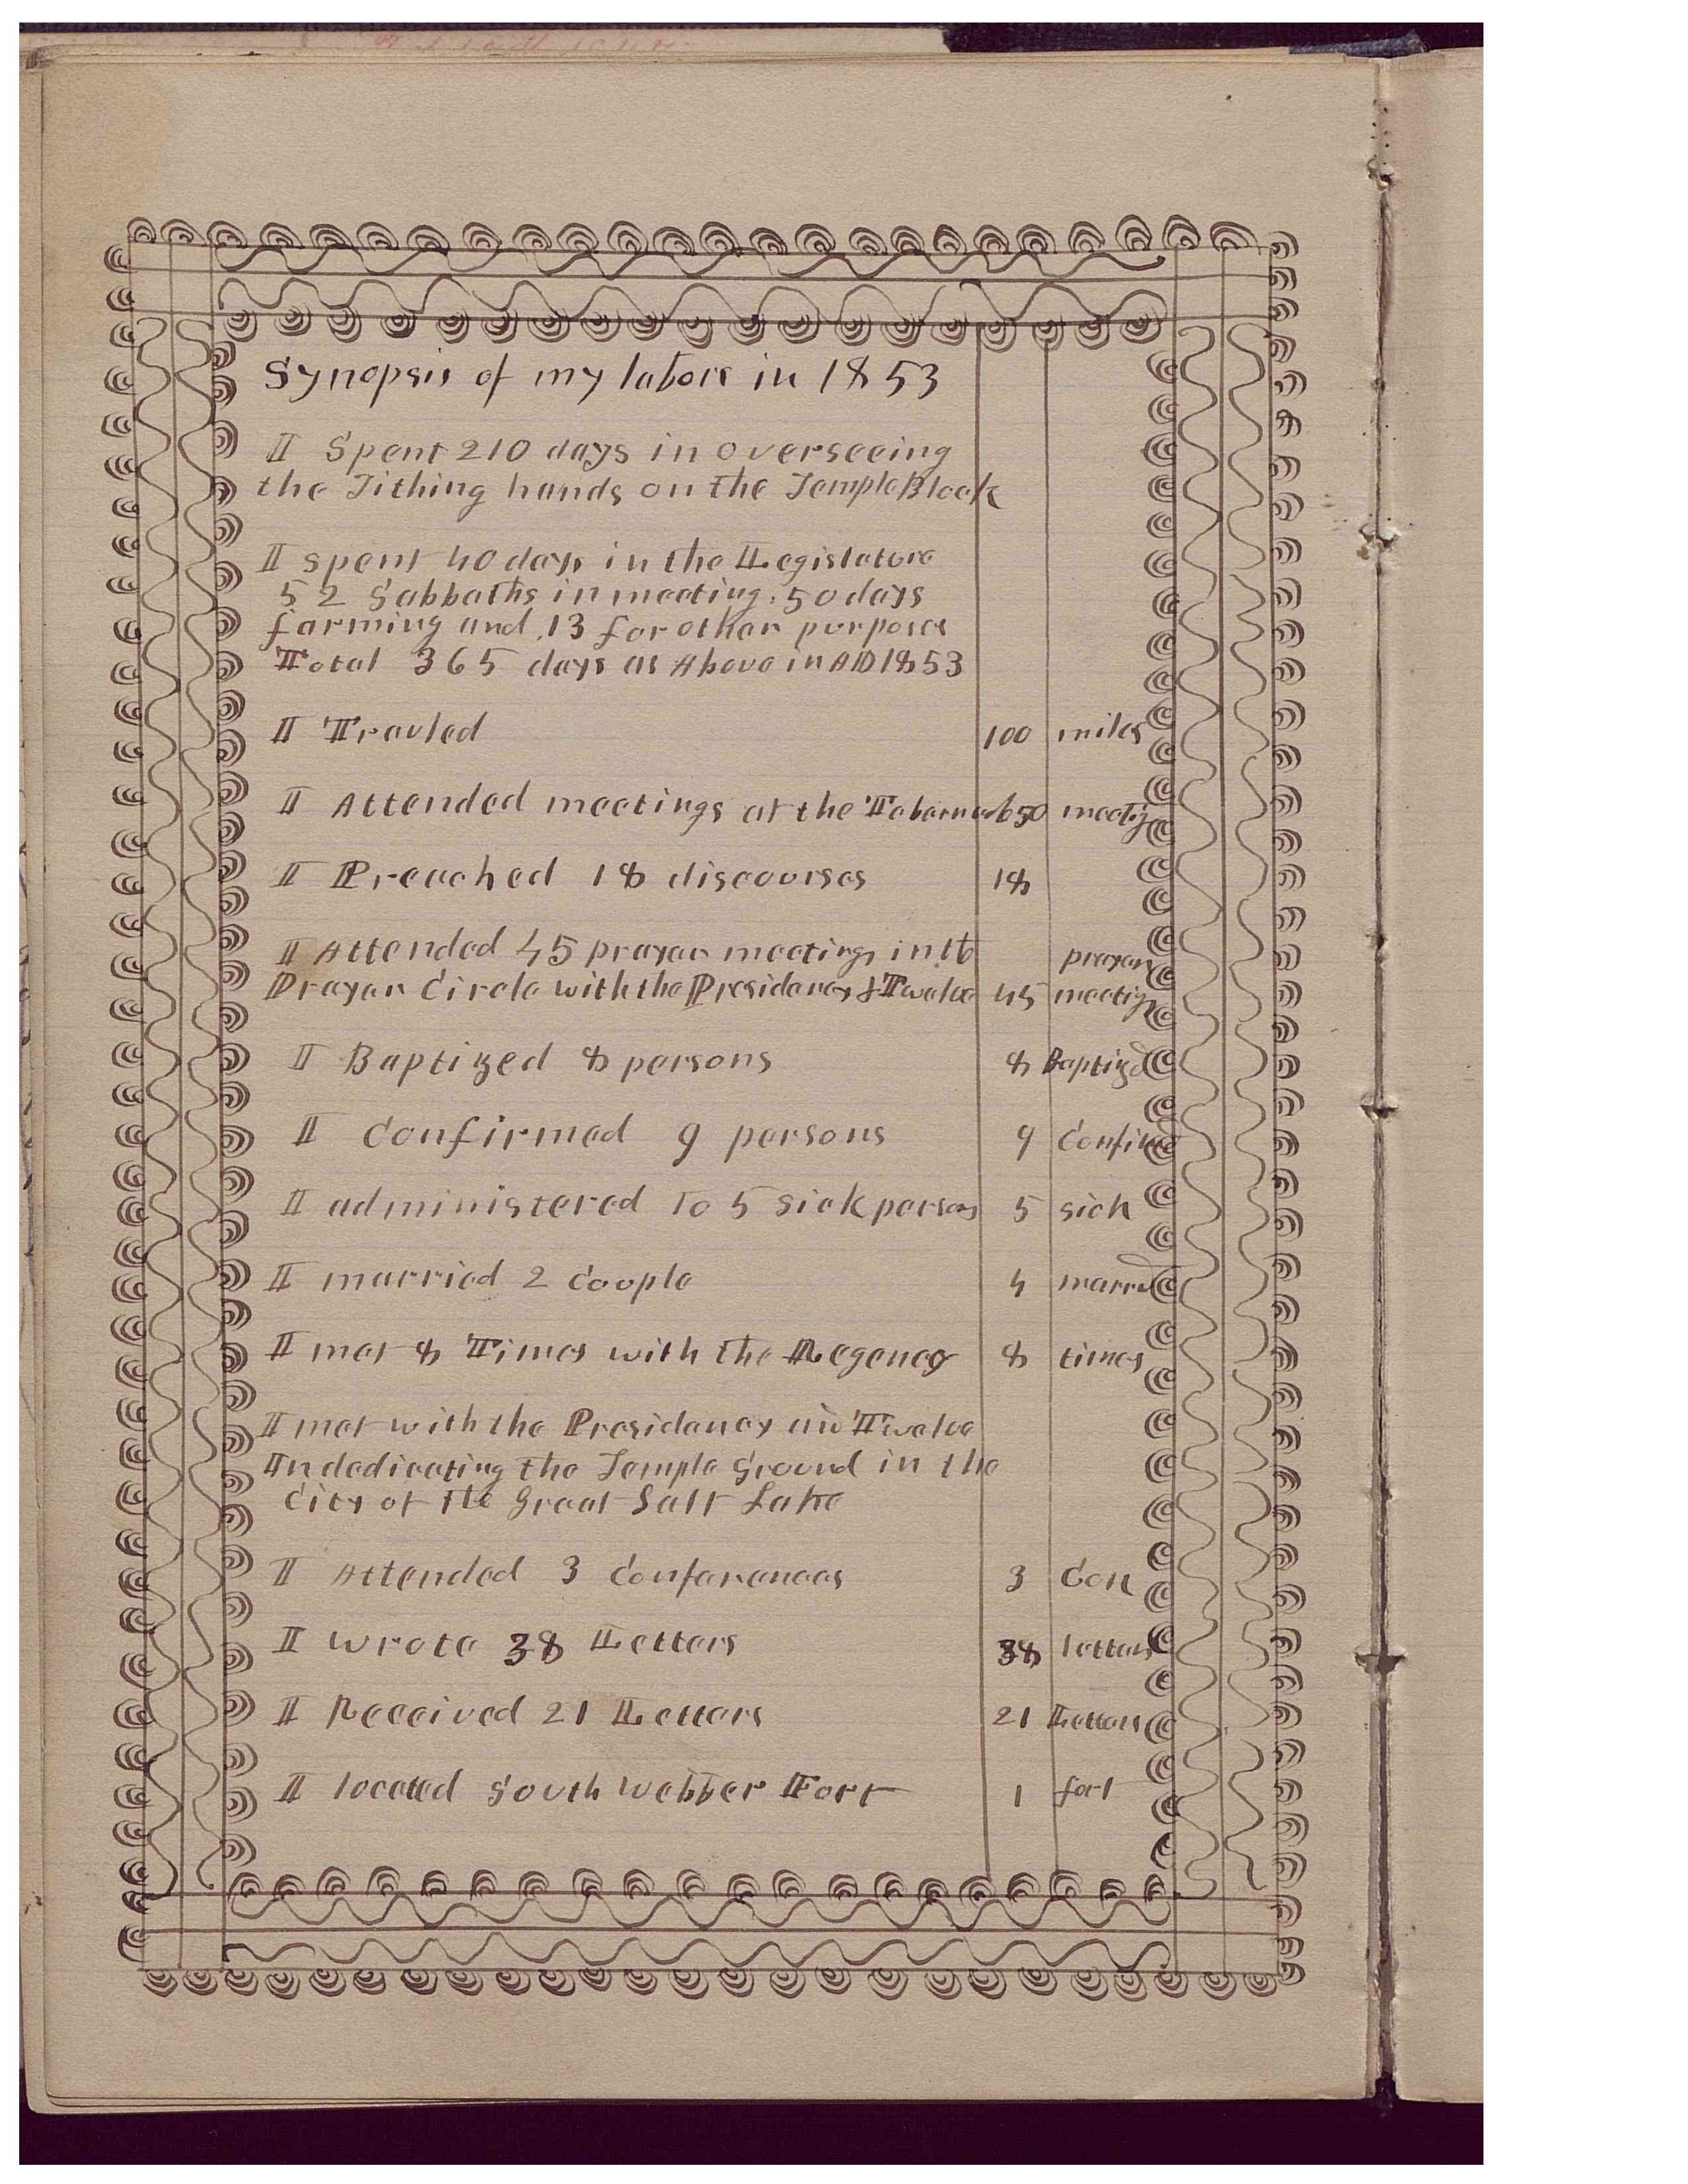 Synopsis of my labors in 1853
I Spent 210 days in overseeing
the Tithing hands on the Temple Block
I spent 40 days in the Legislature
52 Sabbaths in meeting. 50 days
farming and 13 for other purposes
Total 365 days as Above in AD 1853
I Travled 100 miles
I Attended meetings at the Tabernacle 50 meetig
I Preached 18 discourses 18
I Attended 45 prayer meetings in the prayer
Prayer Circle with the Presidency & Twelve 45 meetig
I Baptized 8 persons 8 Baptized
I Confirmed 9 persons 9 Confirmed
I administered to 5 sick persons 5 sick
I married 2 Couple 4 married
I met 8 Times with the Regency 8 times
I met with the Presidency and Twelve
In dedicating the Temple Ground in the
City of the Great Salt Lake
I Attended 3 Conferences 3 Con
I wrote 38 Letters 38 letters
I Received 21 Letters 21 Letters
I located South Webber Fort 1 fort